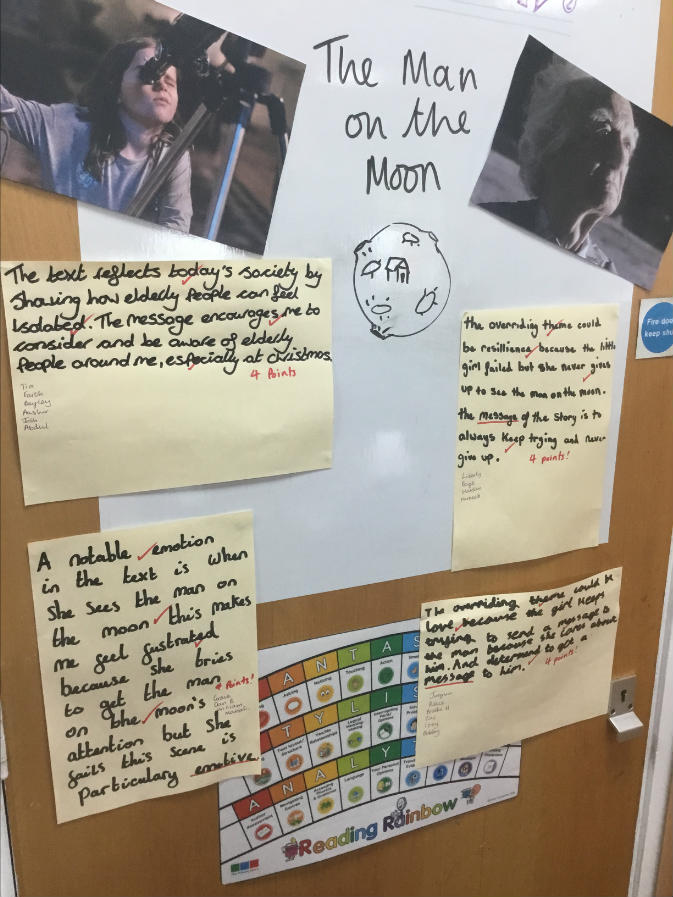 The Man
on the
Moon
The text reflects today's society by
Sharing how elderly People can feel
Isolated. The message encourages me to
consider and be aware of elderly
People around me, especially at christmas.
4 Points
Tia
Josh
Abdul
the overriding theme could
be resillience because the little
girl failed but she never gives
up to see the man on the moon.
the message of the story is to
always keep trying and never
give up.
4 points!
Fire doo
keep shu
A notable emotion
in the text is when
she sees the man on
the moon this makes
me feel fustrated
because she tries
to get the man
on the moon's
attention but she
fails this scene is
Particulary emotive.
4 Points!
The overriding theme could be
love because the girl keeps
trying to send a message to
the man because she cares about
him. And determend to get a
message to him.
4 points!
ANTAS
TYLIS
ANALY
Asking
Noticing
Touching
Action
Language
Reading Rainbow